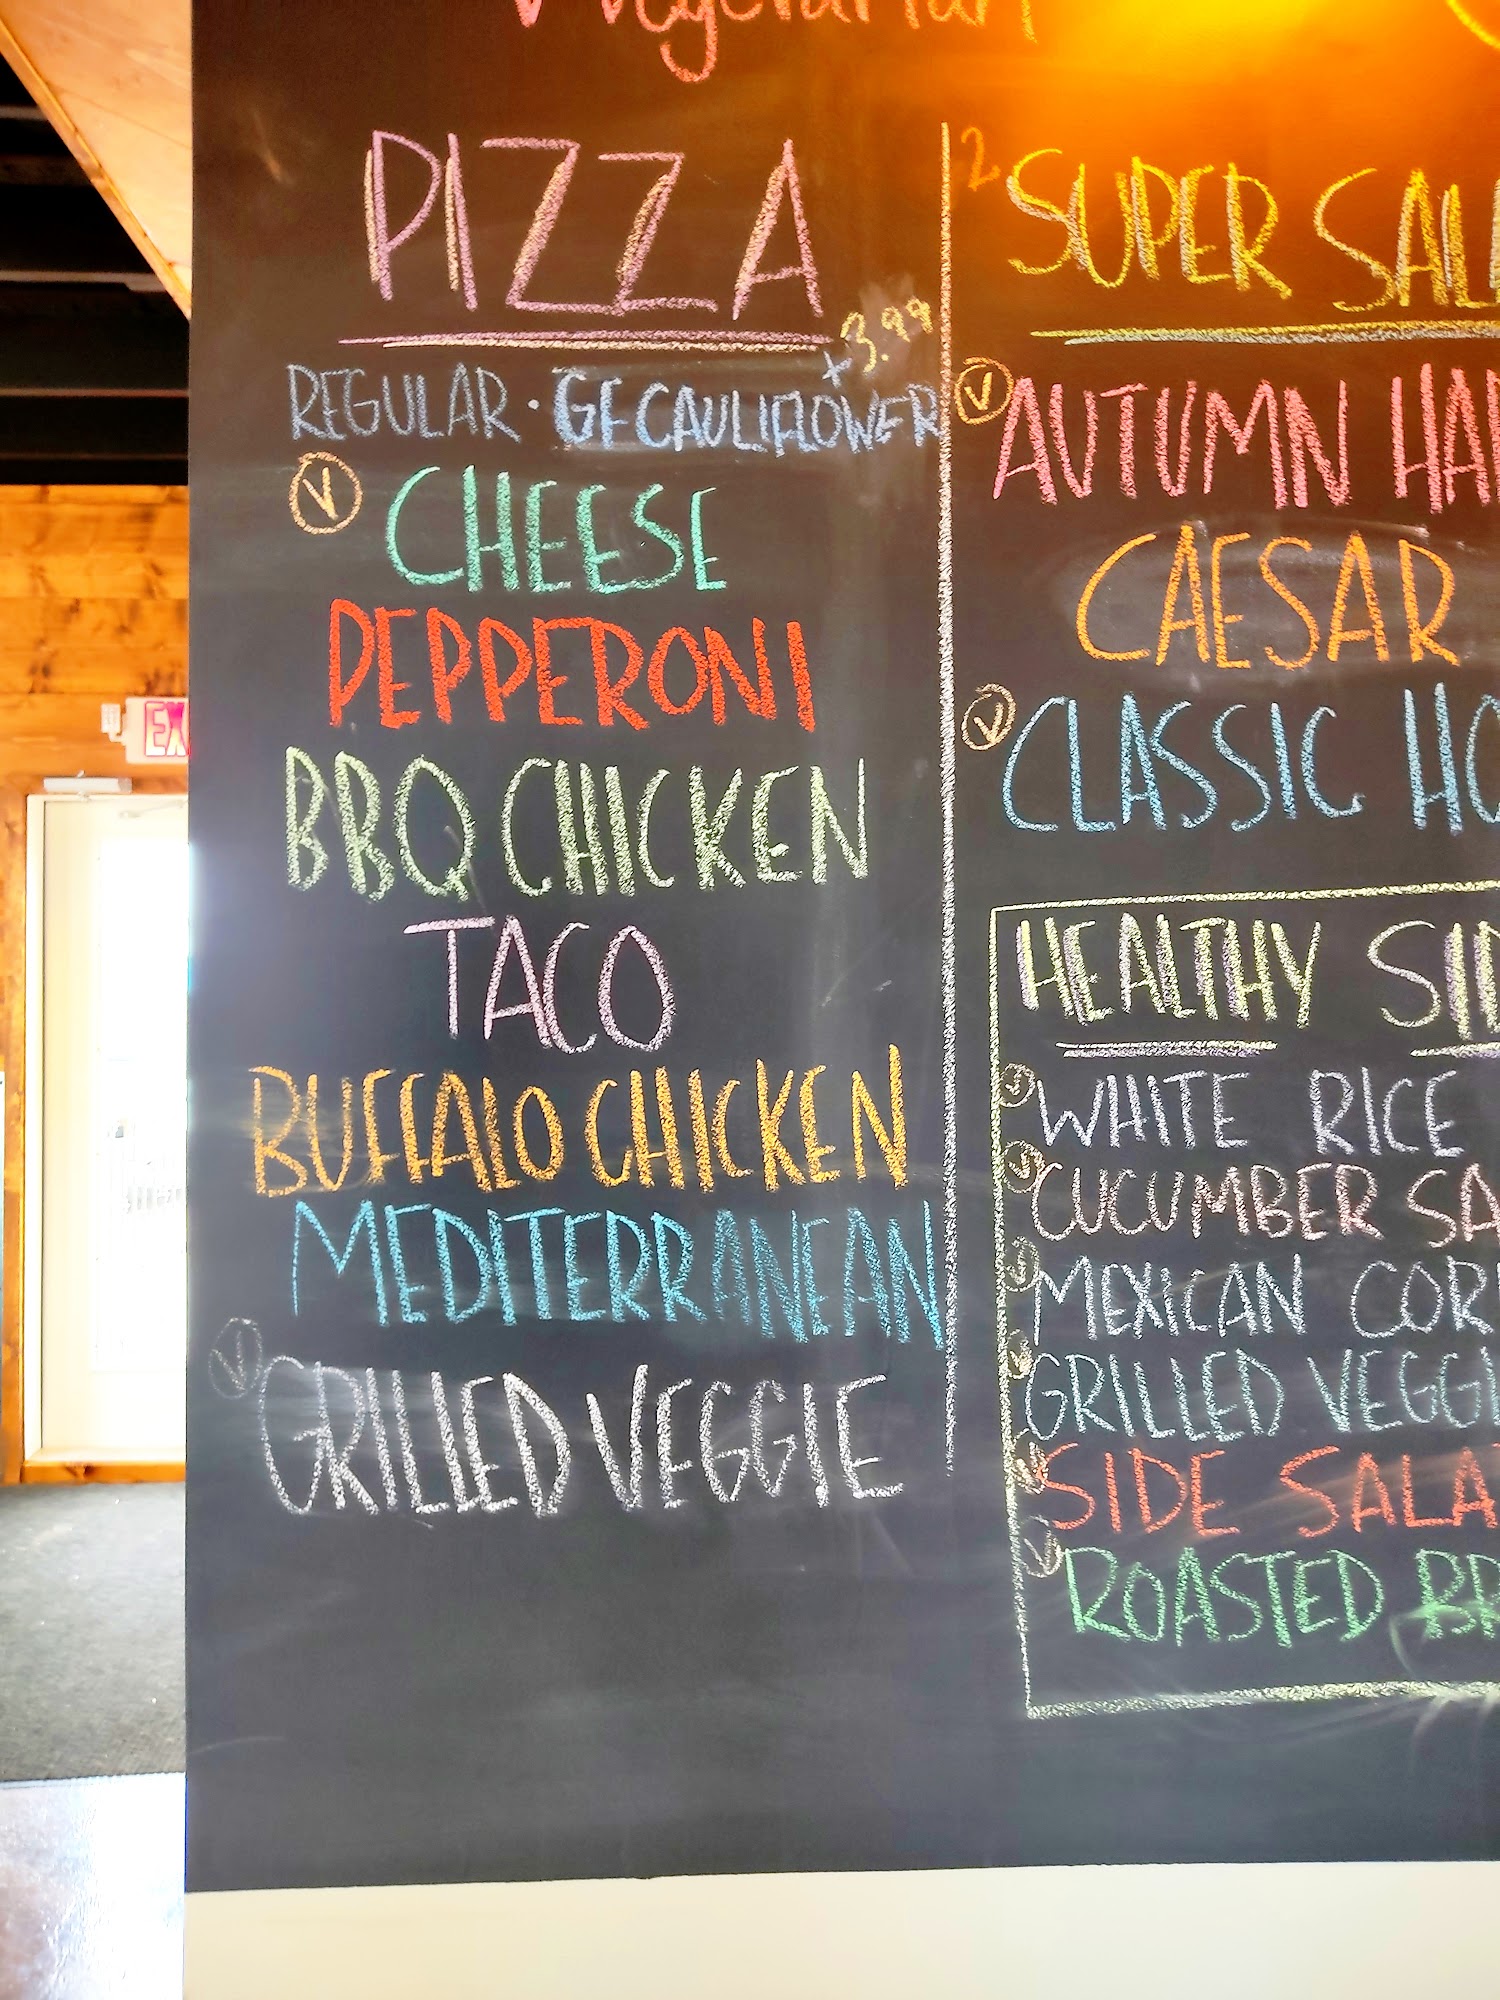 Vegetarian
PIZZA
+3.99
REGULAR · GF CAULIFLOWER
V CHEESE
PEPPERONI
BBQ CHICKEN
TACO
BUFFALO CHICKEN
MEDITERRANEAN
V GRILLED VEGGIE
SUPER SAL
V AUTUMN HA
CAESAR
V CLASSIC HO
HEALTHY SID
V WHITE RICE
V CUCUMBER SA
V MEXICAN COR
V GRILLED VEGGI
V SIDE SALA
V ROASTED BR
EX